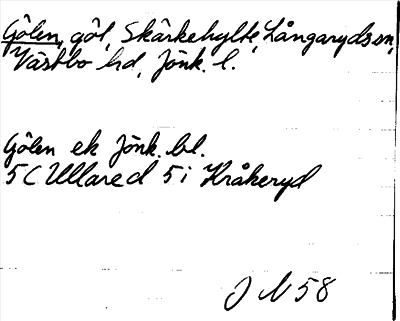 Gölen, göl, Skärkehylte, Långaryds sn,
Västbo hd, Jönk. l.
Gölen ek Jönk. bl.
5C Ullared 5i Kråkeryd
J N 58